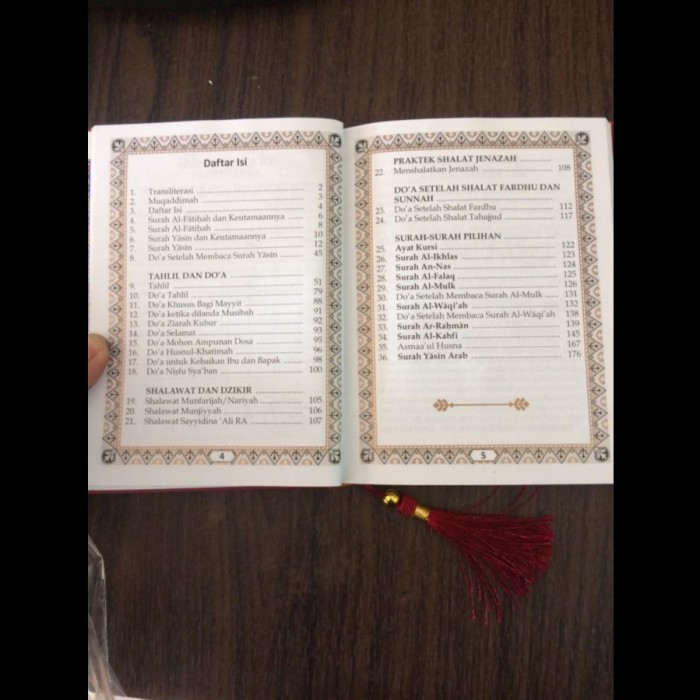 Daftar Isi
1. Transliterasi 2
2. Muqaddimah 3
3. Daftar Isi 4
4. Surah Al-Fātiḥah dan Keutamaannya 6
5. Surah Al-Fātiḥah 8
6. Surah Yāsin dan Keutamaannya 10
7. Surah Yāsin 12
8. Do'a Setelah Membaca Surah Yāsin 45
TAHLIL DAN DO'A
9. Tahlil 51
10. Do'a Tahlil 79
11. Do'a Khusus Bagi Mayyit 88
12. Do'a ketika dilanda Musibah 91
13. Do'a Ziarah Kubur 92
14. Do'a Selamat 93
15. Do'a Mohon Ampunan Dosa 95
16. Do'a Husnul-Khatimah 96
17. Do'a untuk Kebaikan Ibu dan Bapak 98
18. Do'a Nisfu Sya'ban 100
SHALAWAT DAN DZIKIR
19. Shalawat Munfarijah/Nariyah 105
20. Shalawat Munjiyyah 106
21. Shalawat Sayyidina 'Ali RA 107
4
PRAKTEK SHALAT JENAZAH
22. Menshalatkan Jenazah 108
DO'A SETELAH SHALAT FARDHU DAN
SUNNAH
23. Do'a Setelah Shalat Fardhu 112
24. Do'a Setelah Shalat Tahajjud 117
SURAH-SURAH PILIHAN
25. Ayat Kursi 122
26. Surah Al-Ikhlas 123
27. Surah An-Nas 124
28. Surah Al-Falaq 125
29. Surah Al-Mulk 126
30. Do'a Setelah Membaca Surah Al-Mulk 131
31. Surah Al-Wāqi'ah 132
32. Do'a Setelah Membaca Surah Al-Wāqi'ah 138
33. Surah Ar-Raḥmān 139
34. Surah Al-Kahfi 145
35. Asmaa'ul Husna 167
36. Surah Yāsin Arab 176
5